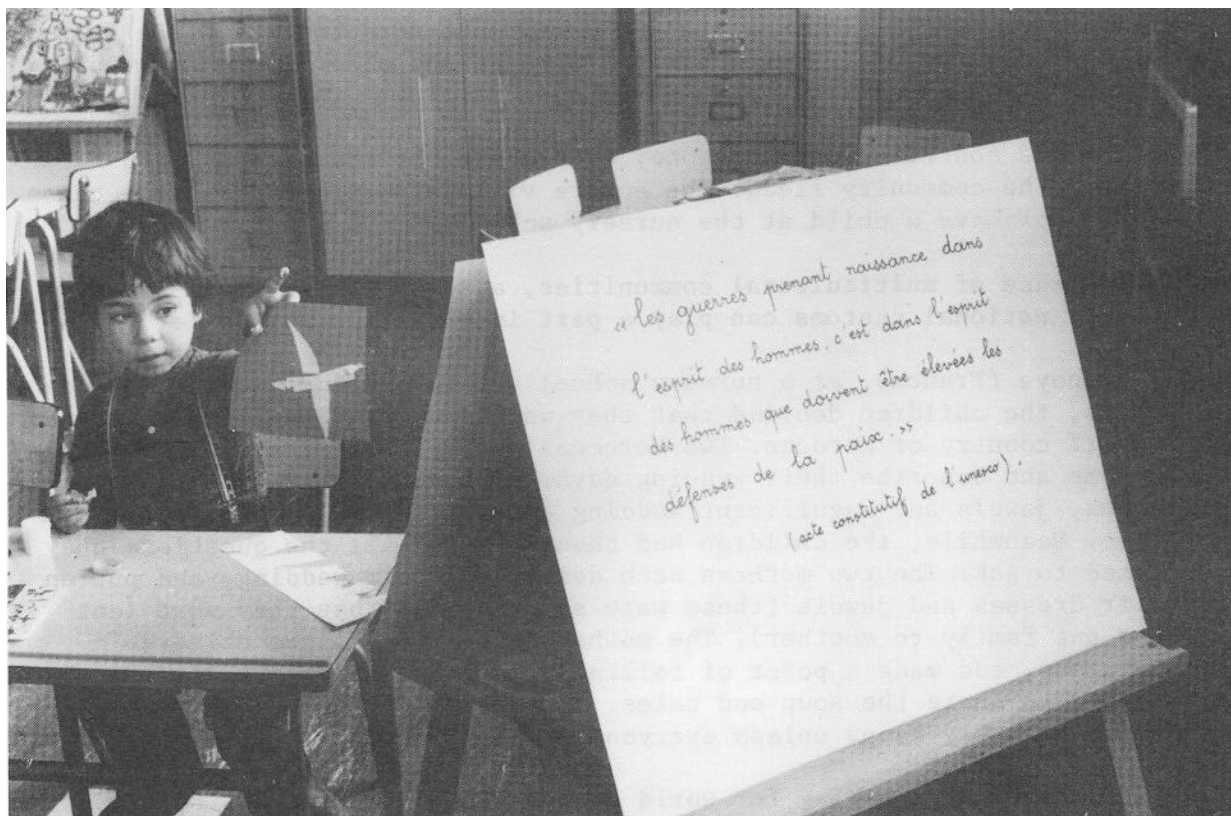 « les guerres prenant naissance dans
l'esprit des hommes, c'est dans l'esprit
des hommes que doivent être élevées les
défenses de la paix. »
acte constitutif de l'unesco).